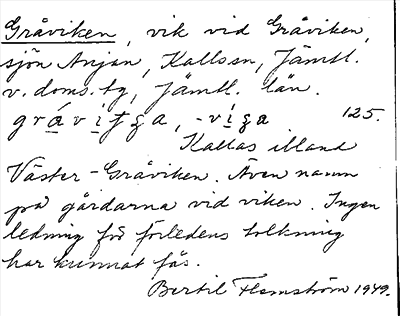 Gråviken, vik vid Gråviken,
sjön Anjan, Kallssn, Jämtl.
v. doms. tg, Jämtl. län.
125.
Kallas ibland
Väster-Gråviken. Även namn
på gårdarna vid viken. Ingen
ledning för förledens tolkning
har kunnat fås.
Bertil Flemström 1949.